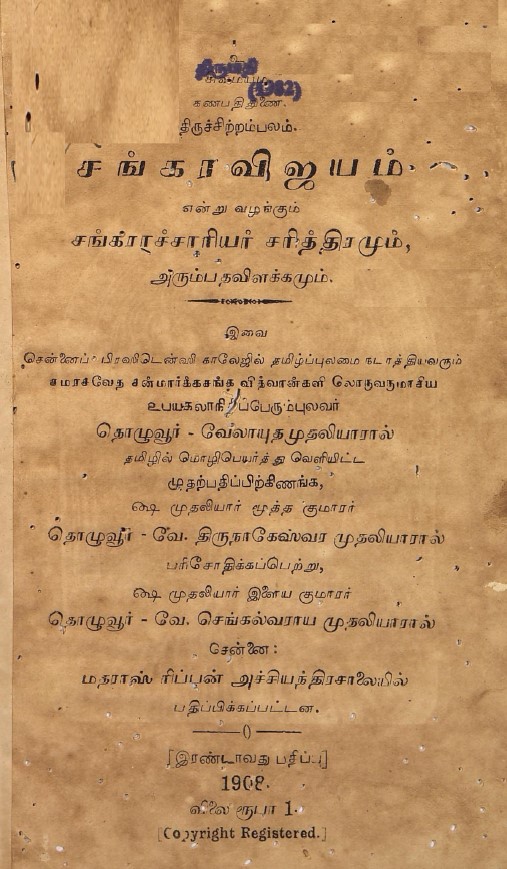 திருமதி
(1982)
சிவமயம்
கணபதி துணை.
திருச்சிற்றம்பலம்.
சங்கரவிஜயம்
என்று வழங்கும்
சங்கராச்சாரியர் சரித்திரமும்,
அரும்பதவிளக்கமும்.
இவை
சென்னைப் பிரஸிடென்ஸி காலேஜில் தமிழ்ப்புலமை நடாத்தியவரும்
சமரசவேத சன்மார்க்கசங்க வித்வான்களி லொருவருமாகிய
உபயகலாநிதிப்பேரும்புலவர்
தொழுவூர் - வேலாயுதமுதலியாரால்
தமிழில் மொழிபெயர்த்து வெளியிட்ட
முதற்பதிப்பிற்கிணங்க,
ஷை முதலியார் மூத்த குமாரர்
தொழுவூர் - வே. திருநாகேஸ்வர முதலியாரால்
பரிசோதிக்கப்பெற்று,
ஷை முதலியார் இளைய குமாரர்
தொழுவூர் - வே. செங்கல்வராய முதலியாரால்
சென்னை:
மதராஸ் ரிப்பன் அச்சியந்திரசாலையில்
பதிப்பிக்கப்பட்டன.
[இரண்டாவது பதிப்பு]
1908.
விலை ரூபா 1.
[Copyright Registered.]